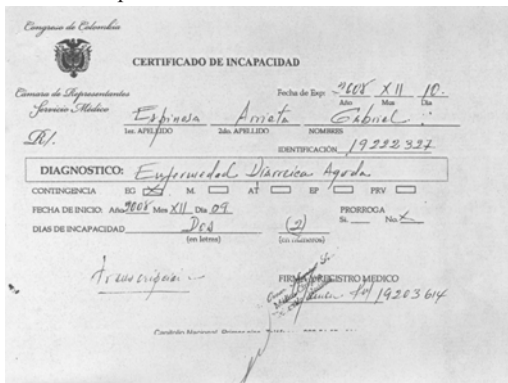 Congreso de Colombia
CERTIFICADO DE INCAPACIDAD
Cámara de Representantes
Servicio Médico
Fecha de Exp: 2008 XII 10.
Año Mes Dia
Espinosa Arrieta Gabriel
1er. APELLIDO 2do. APELLIDO NOMBRES
R/.
IDENTIFICACIÓN 19222327
DIAGNOSTICO: Enfermedad Diarreica Aguda
CONTINGENCIA EG X M. AT EP PRV
FECHA DE INICIO: Año 2008 Mes XII Dia 09
PRORROGA
Si. No. X
DIAS DE INCAPACIDAD Dos (2)
(en letras) (en números)
transcripción
FIRMA Y REGISTRO MEDICO
19203614
Capitolio Nacional